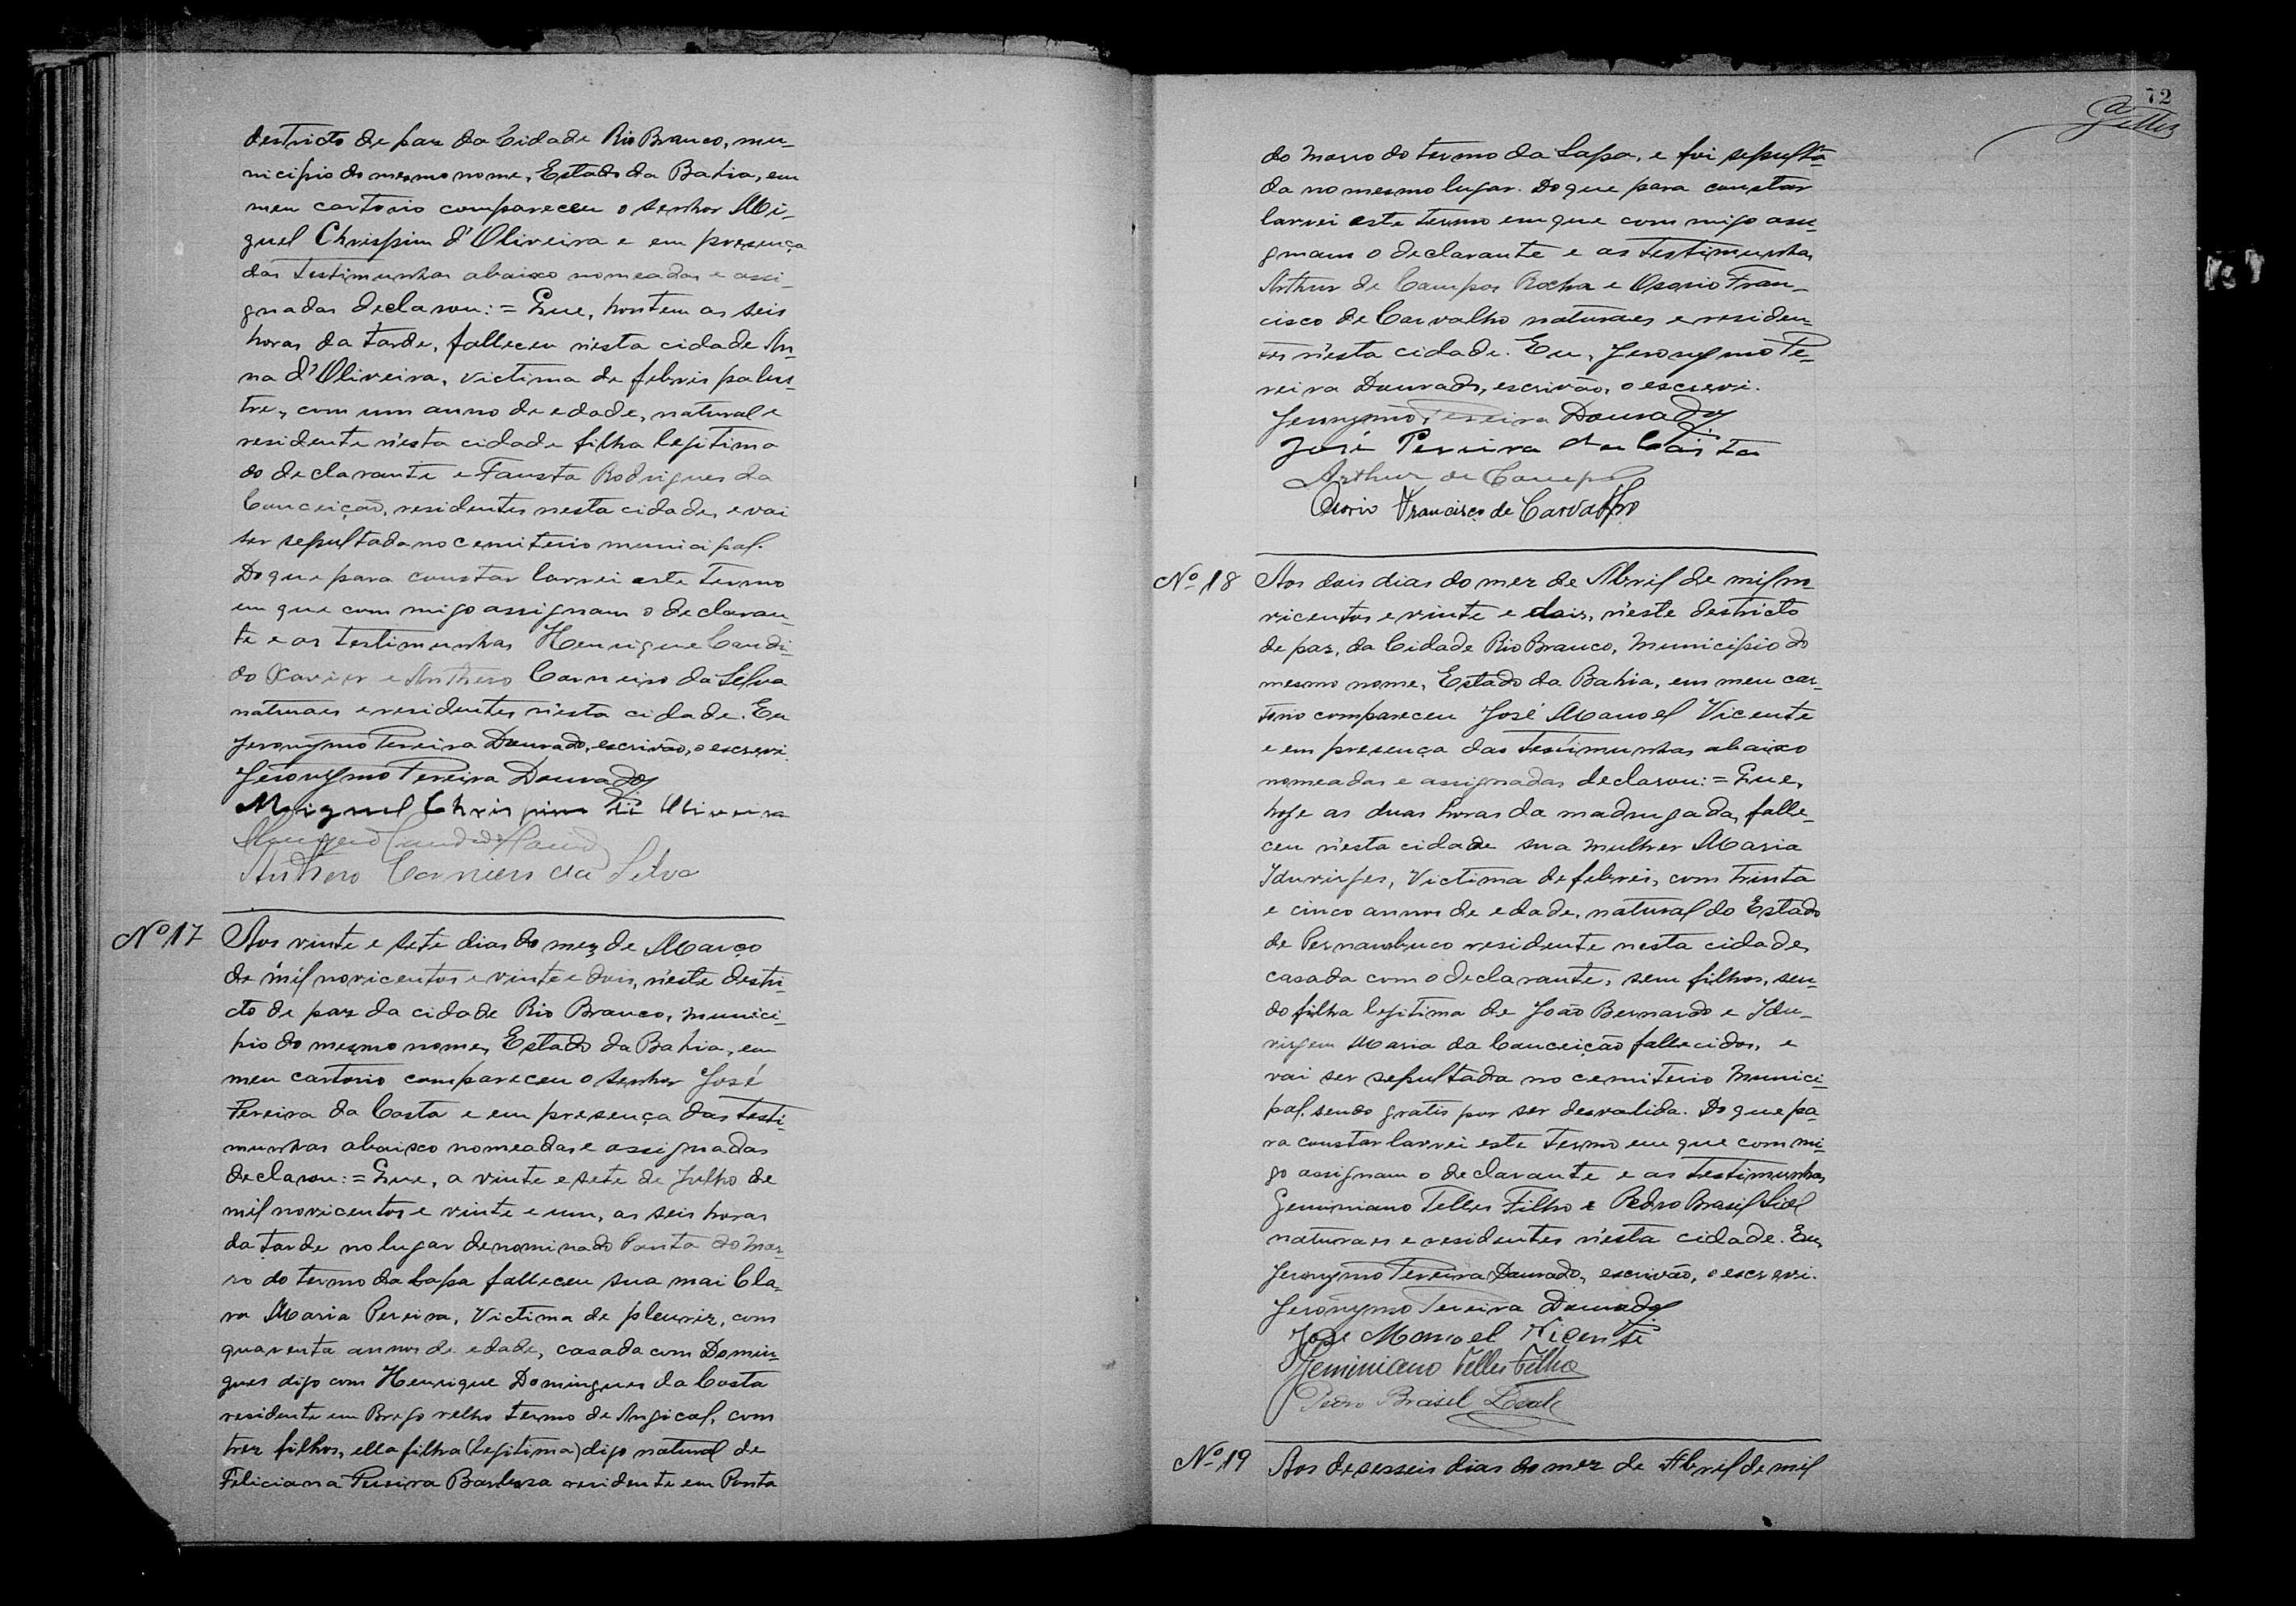 destricto de paz da Cidade Rio Branco, mu-
nicipio do mesmo nome, Estado da Bahia, em
meu cartorio compareceu o senhor Mi-
guel Chrispim d'Oliveira e em presença
das testimunhas abaixo nomeadas e assi-
gnadas declarou: = Que, hontem as seis
horas da tarde, falleceu n'esta cidade An-
na d'Oliveira, victima de febris palus-
tre, com um anno de edade, natural e
residente n'esta cidade filha legitima
do declarante e Fausta Rodrigues da
Conceição, residentes nesta cidade, e vai
ser sepultada no cemiterio municipal.
Do que para constar lavrei este termo
em que com migo assignam o declaran-
te e as testimunhas Henrique Candi-
do Xavier e Anthero Carneiro da Silva
naturaes e residentes n'esta cidade. Eu
Jeronymo Pereira Dourado, escrivão, o escrevi.
Jeronymo Pereira Dourado
Miguel Chrispim di Oliveira
Anthero Carneiro da Silva
Nº 17 Aos vinte e sete dias do mez de Março
de mil novicentos e vinte e dois, n'este destri-
cto de paz da cidade Rio Branco, munici-
pio do mesmo nome, Estado da Bahia, em
meu cartorio compareceu o senhor José
Pereira da Costa e em presença das testi-
munhas abaixo nomeadas e assignadas
declarou: = Que, a vinte e sete de Julho de
mil novicentos e vinte e um, as seis horas
da tarde no lugar denominado Ponta do Mor-
ro do termo da Lapa falleceu sua mai Cla-
ra Maria Pereira, Victima de pleuriz, com
quarenta annos de edade, casada com Domin-
gues digo com Henrique Domingues da Costa
residente em Brejo velho termo de Angical, com
trez filhos, ella filha (legitima) digo natural de
Feliciana Pereira Barboza residente em Ponta
72
do Morro do termo da Lapa, e foi sepulta-
da no mesmo lugar. Do que para constar
lavrei este termo em que com migo assi-
gnam o declarante e as testimunhas
Arthur de Campos Rocha e Osorio Fran-
cisco de Carvalho naturaes e residen-
tes n'esta cidade. Eu, Jeronymo Pe-
reira Dourado, escrivão, o escrevi.
Jeronymo Pereira Dourado
José Pereira da Costa
Arthur de Campos
Osorio Francisco de Carvalho
Nº 18 Aos dois dias do mez de Abril de mil no-
vicentos e vinte e dois, n'este destricto
de paz, da Cidade Rio Branco, Municipio do
mesmo nome, Estado da Bahia, em meu car-
torio compareceu José Manoel Vicente
e em presença das testimunhas abaixo
nomeadas e assignadas declarou: = Que,
hoje as duas horas da madrugada, falle-
ceu n'esta cidade sua mulher Maria
Iduvirges, Victima de febris, com trinta
e cinco annos de edade, natural do Estado
de Pernambuco residente nesta cidade,
casada com o declarante, sem filhos, sen-
do filha legitima de João Bernardo e Idu-
virgem Maria da Conceição fallecidos, e
vai ser sepultada no cemiterio Munici-
pal, sendo gratis por ser desvalida. Do que pa-
ra constar lavrei este termo em que com mi-
go assignam o declarante e as testimunhas
Geminiano Telles Filho e Pedro Brasil Lial
naturaes e residentes n'esta cidade. Eu,
Jeronymo Pereira Dourado, escrivão, o escrevi.
Jeronymo Pereira Dourado
José Manoel Vicente
Geminiano Telles Filho
Pedro Brasil Leal
Nº 19 Aos desesseis dias do mez de Abril de mil